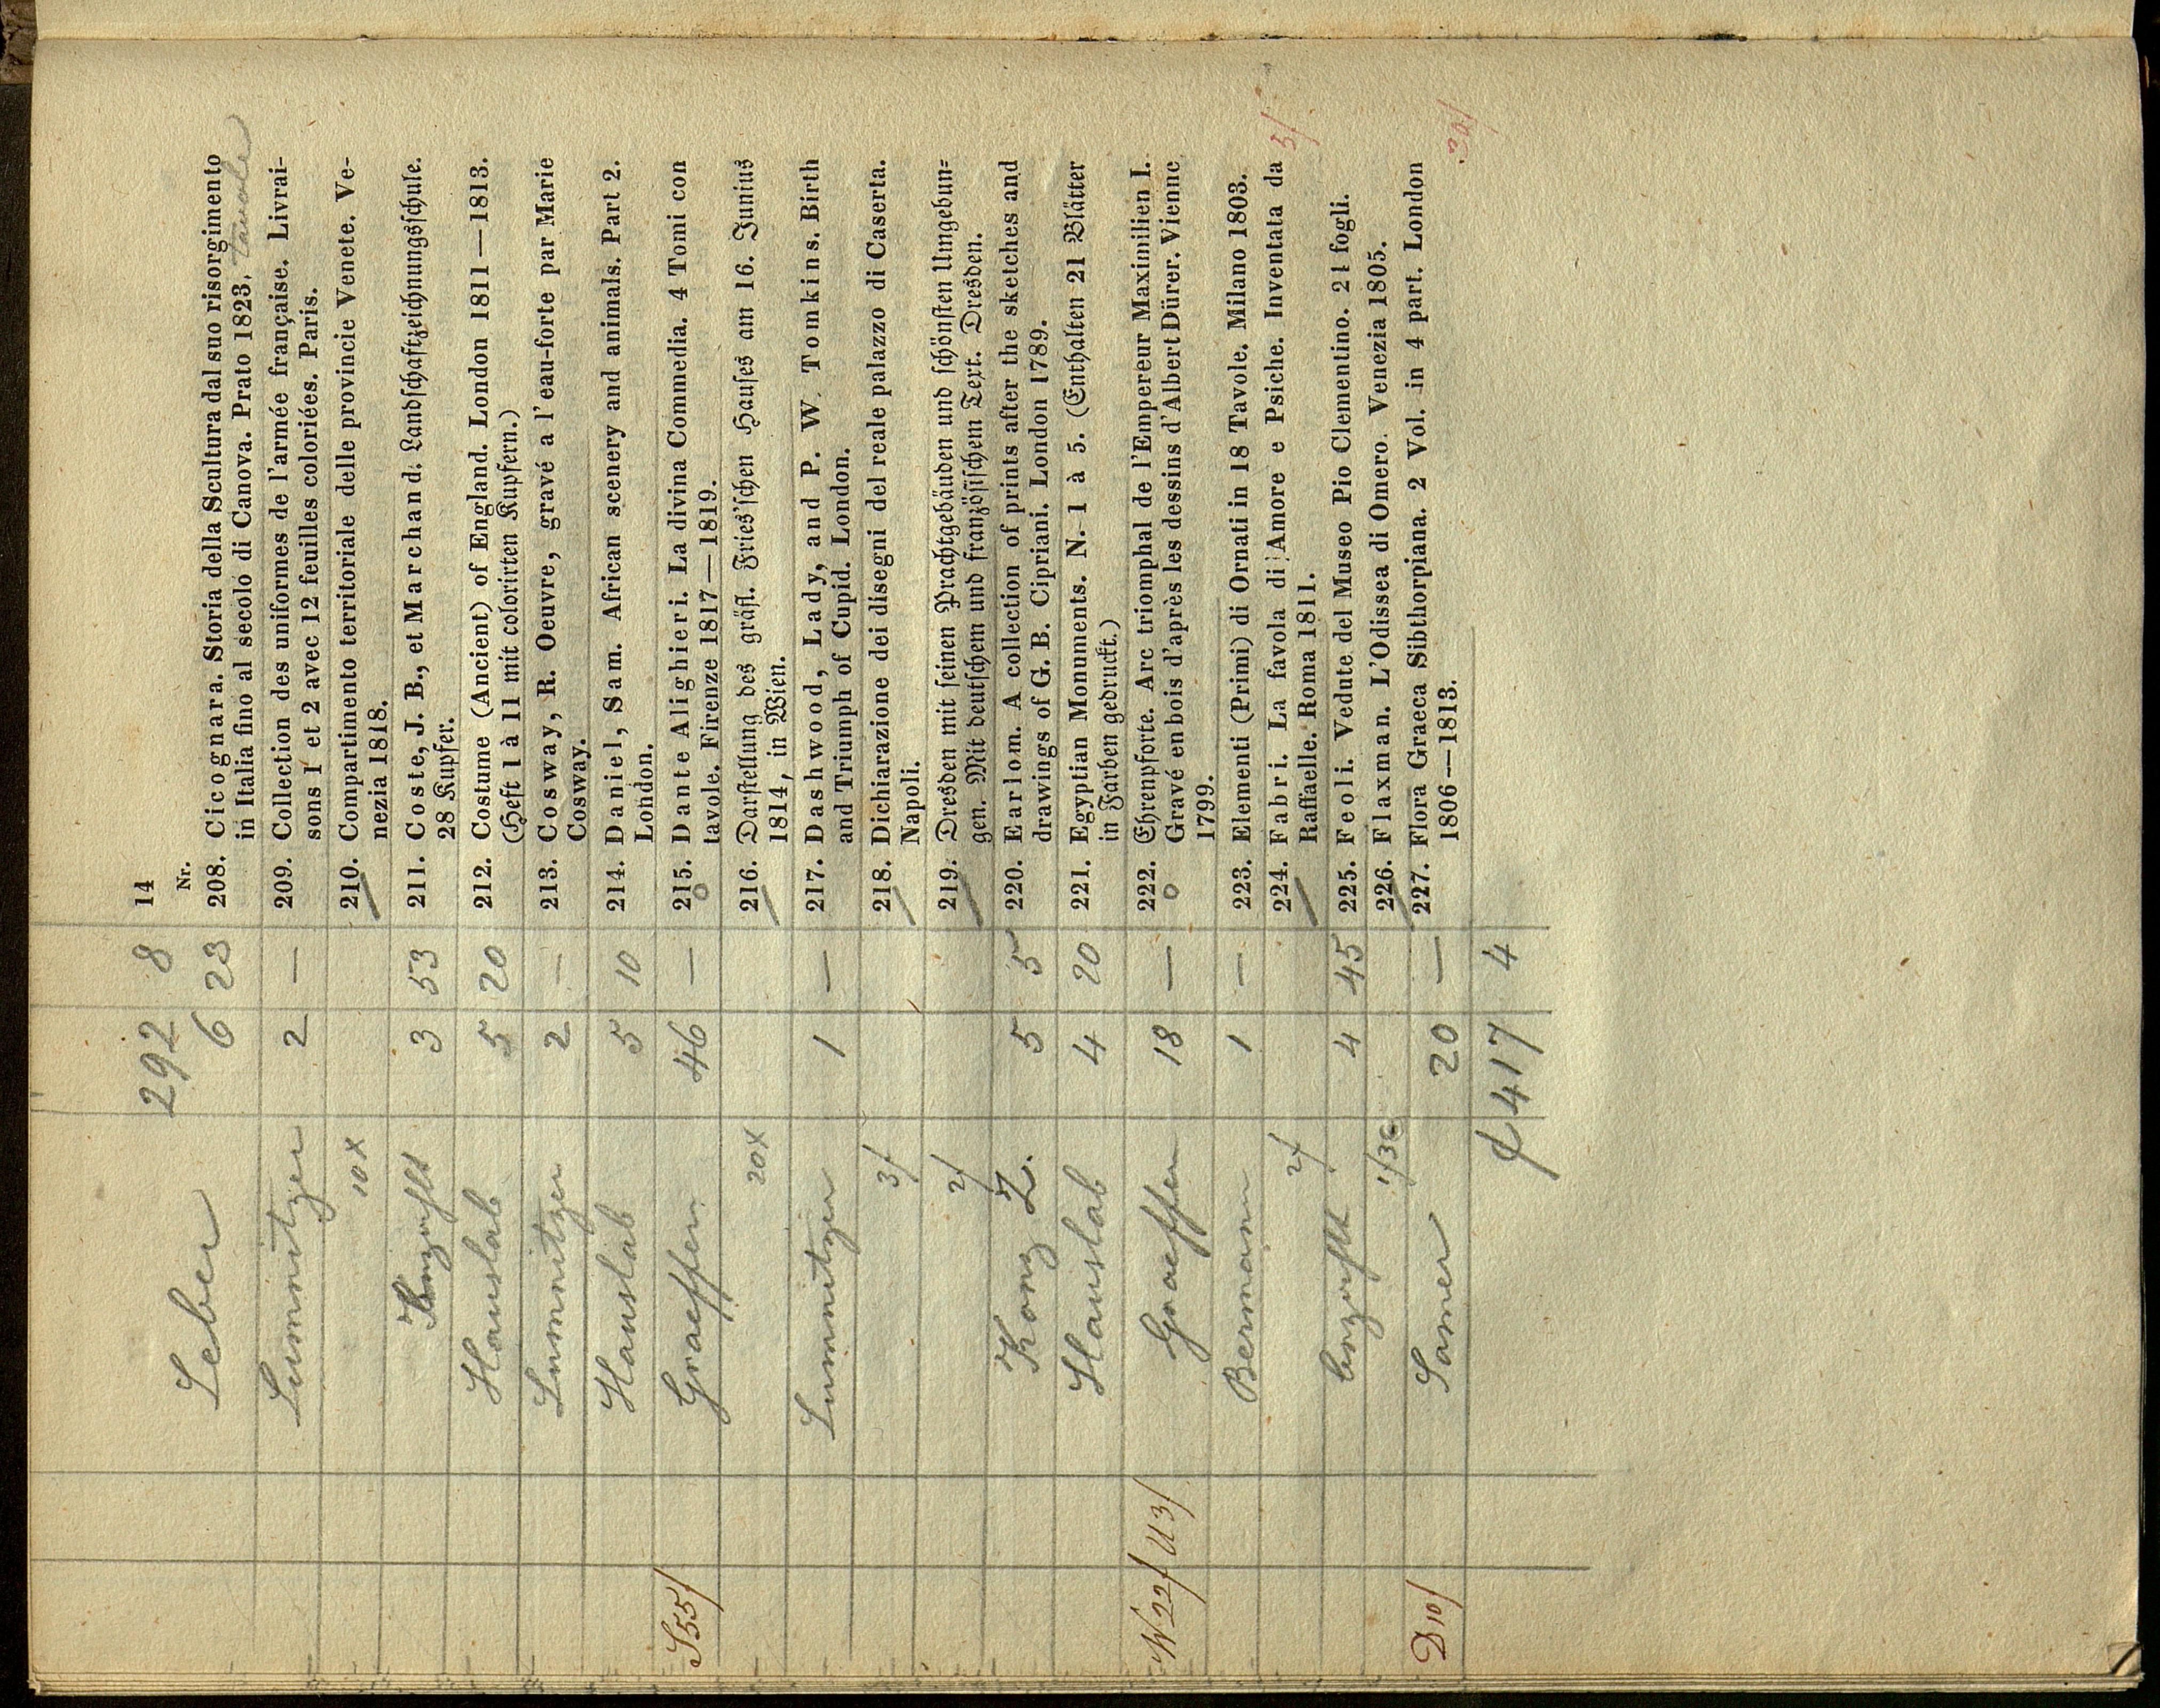 292 8 14
Nr.
Leber 6 23 208. Cicognara. Storia della Scultura dal suo risorgimento
in Italia fino al secolo di Canova. Prato 1823. tavole
Lumnitzer 2 — 209. Collection des uniformes de l'armée française. Livrai-
sons 1 et 2 avec 12 feuilles coloriées. Paris.
10x 210. Compartimento territoriale delle provincie Venete. Ve-
nezia 1818.
3 53 211. Coste, J. B., et Marchand. Landschaftzeichnungsschule.
28 Kupfer.
Hauslab 5 20 212. Costume (Ancient) of England. London 1811—1813.
(Heft 1 à 11 mit colorirten Kupfern.)
Lumnitzer 2 — 213. Cosway, R. Oeuvre, gravé a l'eau-forte par Marie
Cosway.
Hauslab 5 10 214. Daniel, Sam. African scenery and animals. Part 2.
London.
S 55f Graeffer 46 — 215. Dante Alighieri. La divina Commedia. 4 Tomi con
tavole. Firenze 1817—1819.
20x 216. Darstellung des gräfl. Fries'schen Hauses am 16. Junius
1814, in Wien.
Lumnitzer 1 — 217. Dashwood, Lady, and P. W. Tomkins. Birth
and Triumph of Cupid. London.
3f 218. Dichiarazione dei disegni del reale palazzo di Caserta.
Napoli.
2f 219. Dresden mit seinen Prachtgebäuden und schönsten Umgebun-
gen. Mit deutschem und französischem Text. Dresden.
Konz Z. 5 5 220. Earlom. A collection of prints after the sketches and
drawings of G. B. Cipriani. London 1789.
Hauslab 4 20 221. Egyptian Monuments. N. 1 à 5. (Enthalten 21 Blätter
in Farben gedruckt.)
W 22f U 3f Graeffer 18 — 222. Ehrenpforte. Arc triomphal de l'Empereur Maximilien I.
Gravé en bois d'après les dessins d'Albert Dürer. Vienne
1799.
Bermann 1 — 223. Elementi (Primi) di Ornati in 18 Tavole. Milano 1803.
2f 224. Fabri. La favola di Amore e Psiche. Inventata da 3f
Raffaelle. Roma 1811.
4 45 225. Feoli. Vedute del Museo Pio Clementino. 21 fogli.
1f36 226. Flaxman. L'Odissea di Omero. Venezia 1805.
D 10f Samer 20 — 227. Flora Graeca Sibthorpiana. 2 Vol. in 4 part. London
1806—1813. 30f
f 417 4